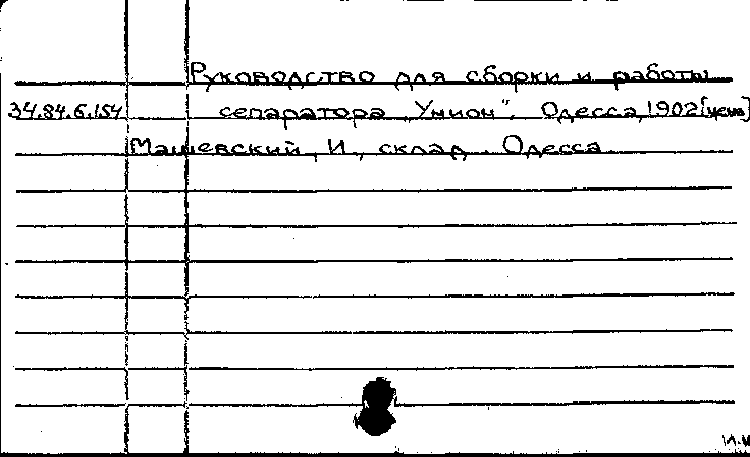 Руководство для сборки и работы
34.84.6.154 сепаратора „Унион“. Одесса, 1902 [цена]
Машевский, И., склад. Одесса.